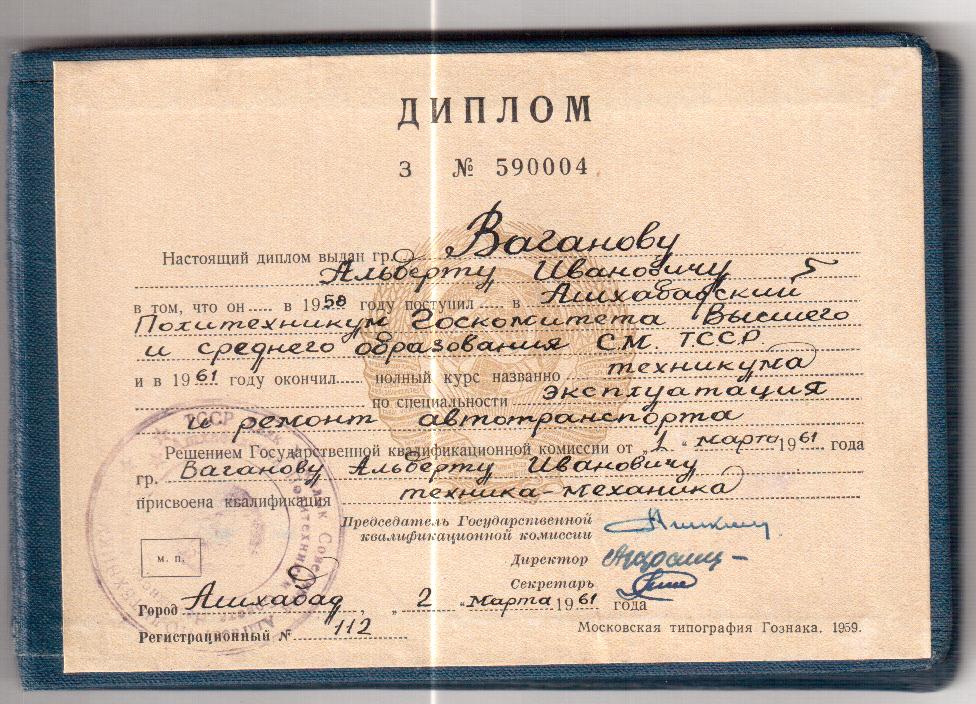 ДИПЛОМ
З № 590004
Настоящий диплом выдан гр. Ваганову
Альберту Ивановичу
в том, что он в 1958 году поступил в Ашхабадский
Политехникум Госкомитета Высшего
и среднего образования СМ. ТССР.
и в 1961 году окончил полный курс названно техникума
по специальности эксплуатация
и ремонт автотранспорта
Решением Государственной квалификационной комиссии от „ 1 “ марта 1961 года
гр. Ваганову Альберту Ивановичу
присвоена квалификация техника-механика
Председатель Государственной
квалификационной комиссии
Директор
Секретарь
м. п.
Город Ашхабад, „ 2 “ марта 1961 года
Регистрационный № 112
Московская типография Гознака. 1959.
ТССР